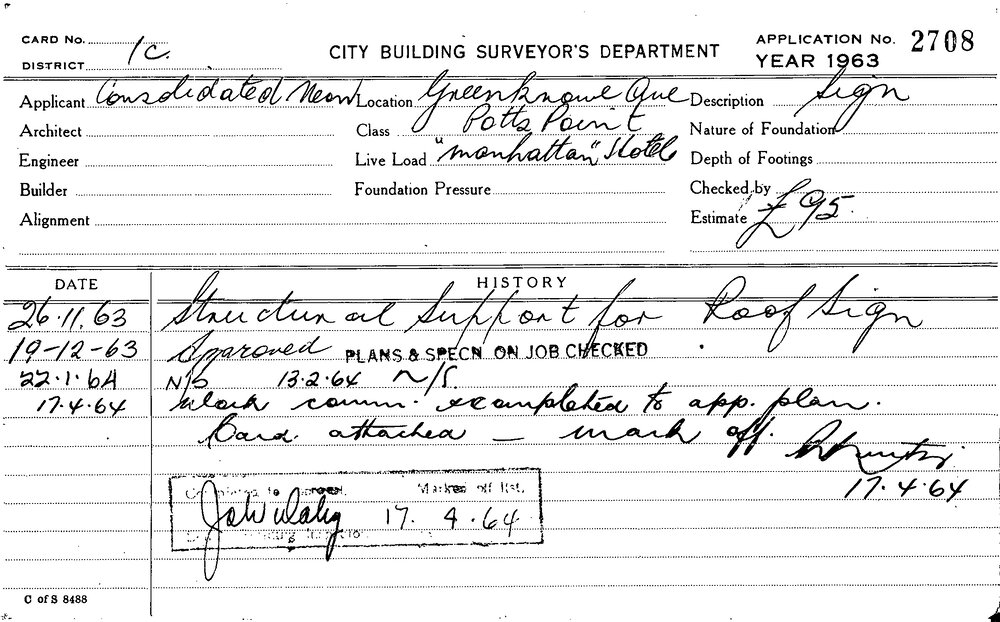 CARD No. 1c. CITY BUILDING SURVEYOR'S DEPARTMENT APPLICATION No. 2708
DISTRICT YEAR 1963
Applicant Consolidated Neon Location Greenknowe Ave Description Sign
Architect Class Potts Point Nature of Foundation
Engineer Live Load "Manhattan" Hotel Depth of Footings
Builder Foundation Pressure Checked by
Alignment Estimate £95.
DATE HISTORY
26.11.63 Structural Support for Roof Sign
19-12-63 Approved PLANS & SPECN ON JOB CHECKED
22.1.64 N/S 13.2.64 N/S.
17.4.64 Work comm. & completed to app. plan.
Card attached — mark off.
17.4.64
Marked off list.
17. 4. 64
C of S 8488